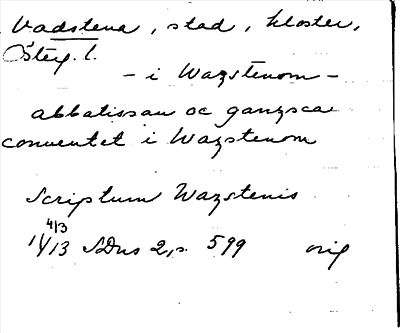 Vadstena, stad, kloster,
Östg. l.
- i Wazstenom -
abbatissan oc ganzsca
conuentet i Wazstenom
Scriptum Wazstenis
4/3
1413 SDns 2, s. 599 orig